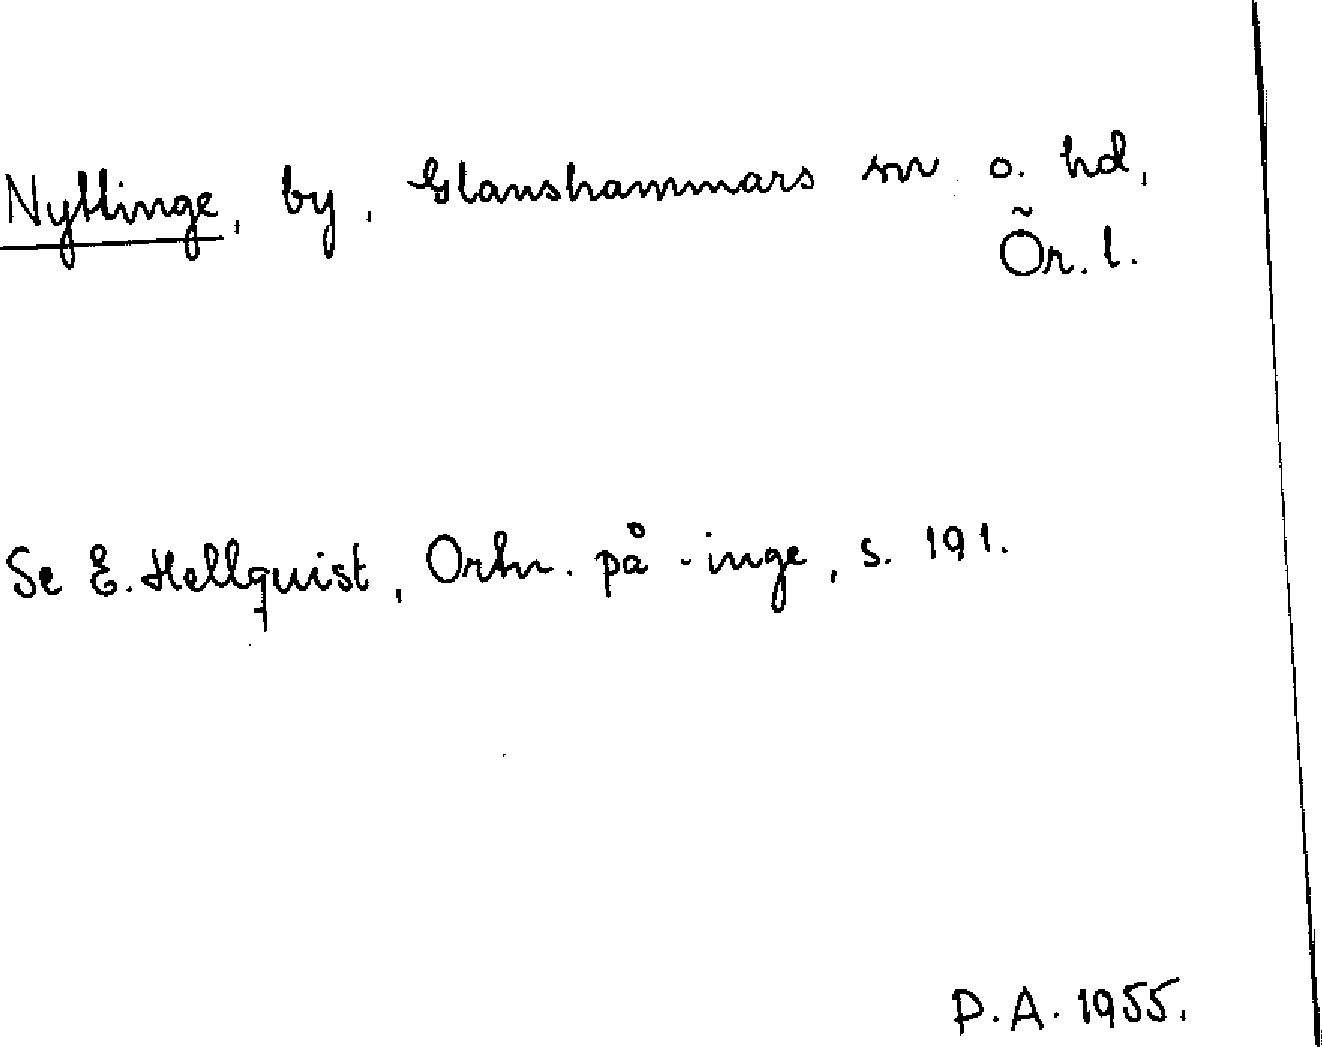 Nyttinge, by, Glanshammars sn o. hd,
Ör. l.
Se E. Hellquist, Ortn. på -inge, s. 191.
P.A. 1955.